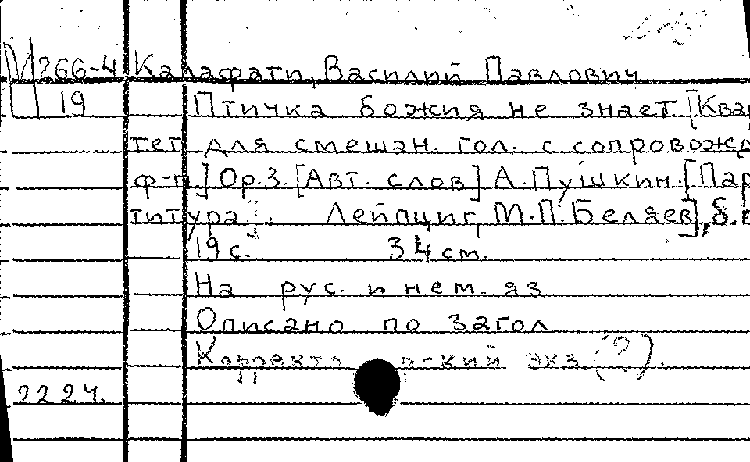 М 266-4 Калафати, Василий Павлович
19 Птичка божия не знает [Квар
тет для смешан. гол. с сопровожд
ф-п.] Ор.3. [Авт. слов] А. Пушкин. [Пар
титура]. Лейпциг, М.П. Беляев], б.
19 с. 34 см.
На рус. и нем. яз
Описано по загол
экз. (?).
2224.